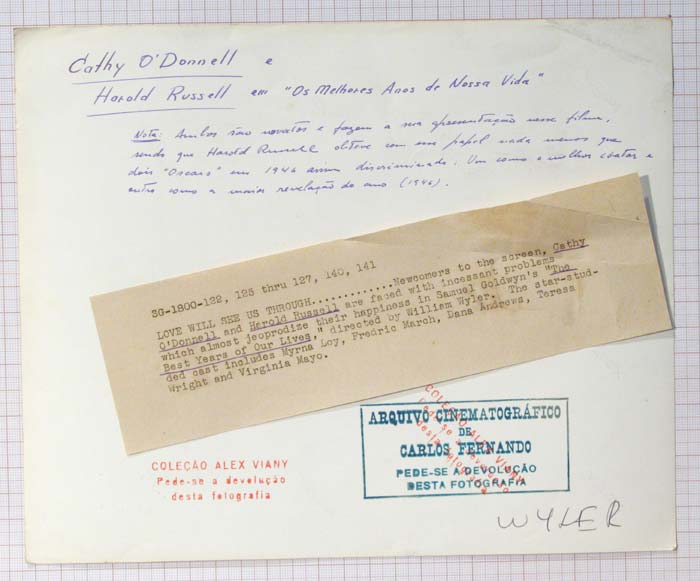 Cathy O'Donnell e
Harold Russell em "Os Melhores Anos de Nossa Vida"
Nota: Ambos são novatos e fazem a sua apresentação nesse filme,
sendo que Harold Russell obteve com esse papel nada menos que
dois "Oscars" em 1946 assim discriminado. Um como o melhor coatar e
outro como a maior revelação do ano (1946).
SG-1800-122, 125 thru 127, 140, 141
LOVE WILL SEE US THROUGH............Newcomers to the screen, Cathy
O'Donnell and Harold Russell are faced with incessant problems
which almost jeoprodize their happiness in Samuel Goldwyn's "The
Best Years of Our Lives," directed by William Wyler. The star-stud-
ded cast includes Myrna Loy, Fredric March, Dana Andrews, Teresa
Wright and Virginia Mayo.
COLEÇÃO ALEX VIANY
Pede-se a devolução
desta fotografia
COLEÇÃO ALEX VIANY
Pede-se a devolução
desta fotografia
ARQUIVO CINEMATOGRÁFICO
DE
CARLOS FERNANDO
PEDE-SE A DEVOLUÇÃO
DESTA FOTOGRAFIA
WYLER